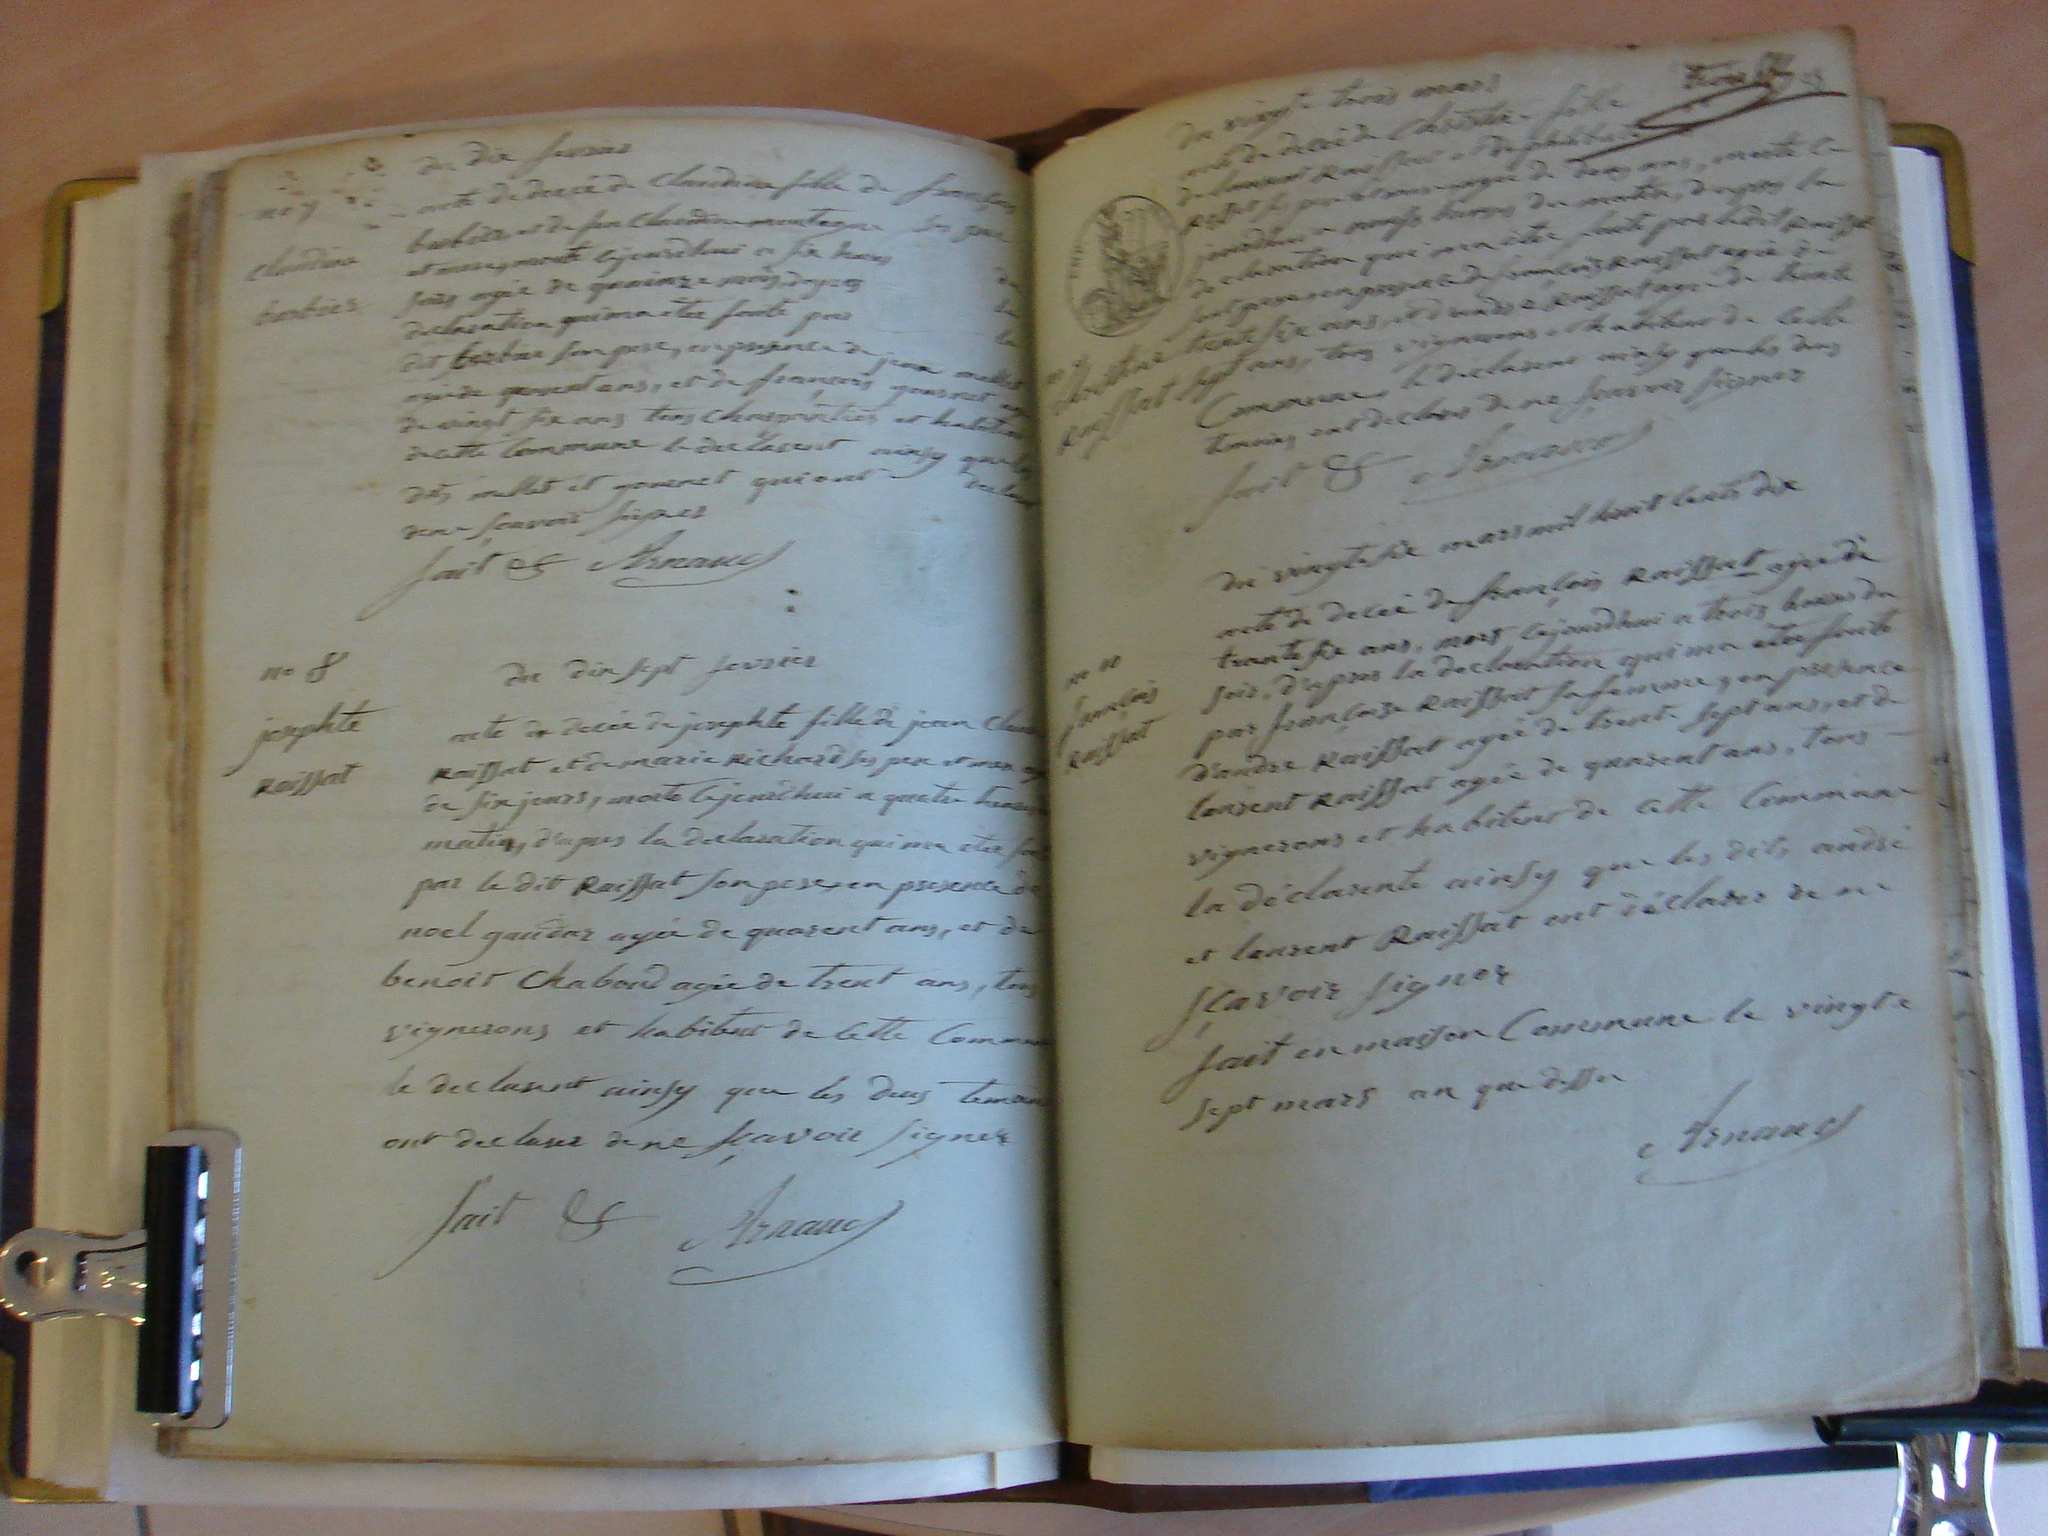 du dix fevrier
no 7
claudine
barbier
acte de decée de claudine fille de françois
barbier, et de feu claudine montagne ses pere
et mere, morte cejourdhui a six heures
soir agée de quainze mois, d'apres
declaration qui ma etée faite par
dit barbier son pere, en presence de jean mallet
agé de quarent ans, et de françois gourret agé
de vingt six ans tous charpentiers et habitan
de cette commune le declarent ainsy que les
dits mallet et gourret qui ont declaré
de ne sçavoir signer
fait & Arnaud
no 8
josephte
Raissat
du dix sept fevrier
acte de decée de josephte fille de jean Claude
Raissat et de marie Richard ses pere et mere agé
de six jours, morte cejourdhui a quatre heures
matin, d'apres la declaration qui ma etée fait
par le dit Raissat son pere, en presence de
noel gaudar agée de quarent ans, et de
benoit Chaboud agée de trent ans, tous
vignerons et habitent de Cette Commune
le declarent ainsy que les deus temoins
ont declarer de ne sçavoir signer
fait & Arnaud
du vingt trois mars
acte de decée de Christine fille
de laurent Raissat et de
Raissat ses pere et mere agée de deux ans, morte ce
jourdhui a onze heures du matin, d'apres la
declaration qui ma etée faite par ledit Raissat
son pere en presence de françois Raissat agée de
trente six ans, et d'andré Raissat age de trente
sept ans, tous vignerons et habitent de Cette
Commune le declarent ainsy que les deus
temoins ont declarer de ne sçavoir signer
no 9
Christine
Raissat
fait & Arnaud
du vingt six mars mil huit cents dix
no 10
françois
Raissat
acte de decée de françois Raissat agée de
trante six ans, mort cejourdhui a trois heures du
soir, d'apres la declaration qui ma etée faite
par françoise Raissat sa femme, en presence
d'andre Raissat agée de trent sept ans, et de
laurent Raissat agée de quarent ans, tous
vignerons et habitent de cette Commune
la déclarente ainsy que les dits andré
et laurent Raissat ont déclarer de ne
sçavoir signer
fait en maison Commune le vingt
sept mars an que dessu
Arnaud